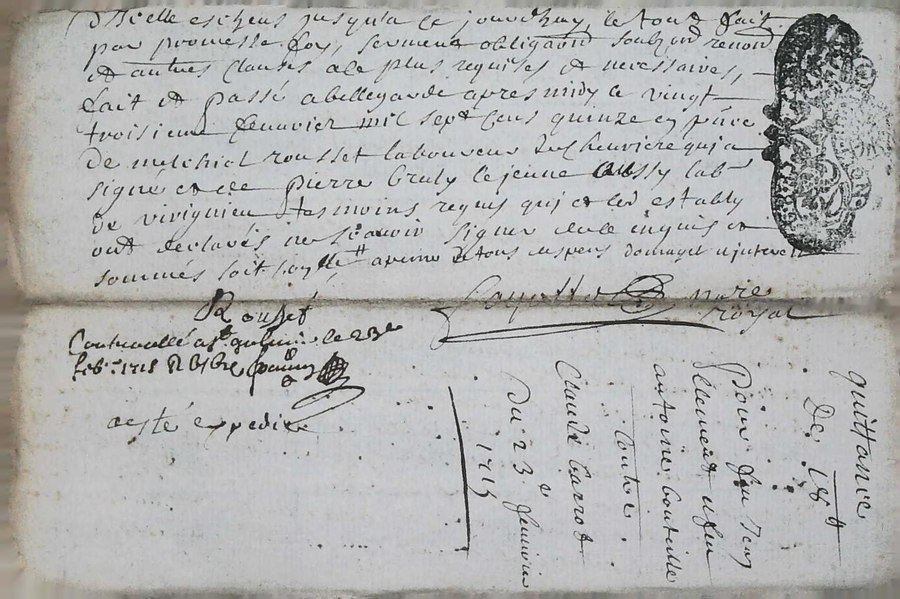 Dicelle escheus jusqua ce jourdhuy, le tout fait
par promesse foy, serment obligaōn soubzōn renonōn
et autres clauses a ce plus requises et necessaires,
fait et passé a bellegarde apres midy le vingt
troisieme febvrier mil sept cens quinze en pnce
de melchiol rousset laboureur de cheuriere qui a
signé et de pierre bruly le jeune aussy lab
de virignieu tesmoins requis qui et led estably
ont declarés ne scavoir signer de ce inquis et
sommés soit a peine de tous despens domages interetz
Rousset
nore
royal
Controuollé a st galmier le 23e
feb. 1715
a esté expedié
quittance
De 18 #
Pour feu Jean
clement et feu
antoine bouteille
contre
Claude barrot
Du 23e feuvrier
1715